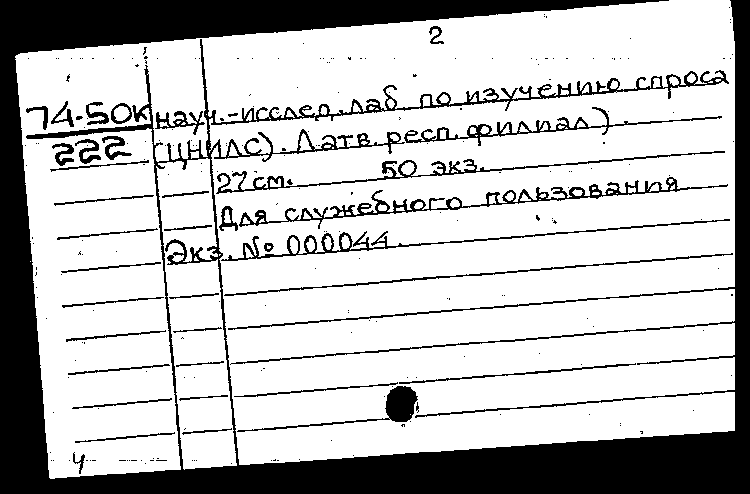 2
74-50к науч.-исслед.лаб по изучению спроса
222 (ЦНИЛС). Латв.респ.филиал).
27см. 50 экз.
Для служебного пользования
Экз. № 000044.
4